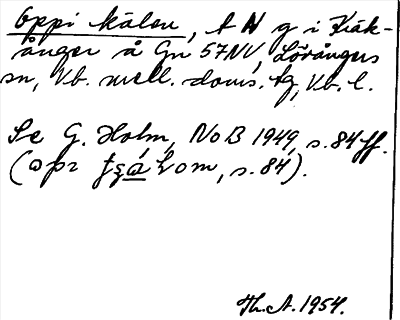 Oppi kälen, t N g i Kräk-
ånger å Gn 57NV, Lövångers
sn, Vb. mell. doms. tg, Vb. l.
Se G. Holm, NoB 1949, s. 84 ff.
(opr, s. 84).
Th. A. 1954.